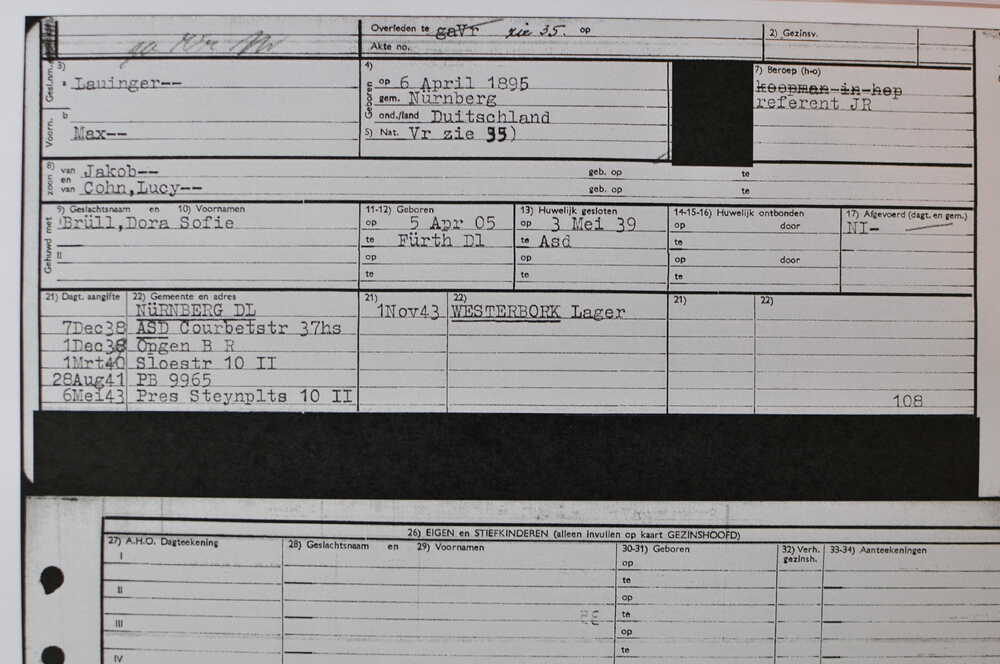 Overleden te gaVr zie 35. op
2) Gezinsv.
Akte no.
3)
Gesl.nm.
a Lauinger--
4)
Geboren
op 6 April 1895
7) Beroep (h-o)
koopman-in-hop
gem. Nürnberg
referent JR
b
ond./land Duitschland
Voorn.
Max--
5) Nat. Vr zie 35)
zoon 8)
van Jakob--
geb. op te
en
van Cohn,Lucy--
geb. op te
Gehuwd met
9) Geslachtsnaam en 10) Voornamen
11-12) Geboren
13) Huwelijk gesloten
14-15-16) Huwelijk ontbonden
17) Afgevoerd (dagt. en gem.)
Brüll,Dora Sofie
op 5 Apr 05
op 3 Mei 39
op door
NI-
te Fürth Dl
te Asd
te
II
op
op
op door
te
te
te
21) Dagt. aangifte
22) Gemeente en adres
21)
22)
21)
22)
NüRNBERG DL
1Nov43 WESTERBORK Lager
7Dec38 ASD Courbetstr 37hs
1Dec38 Opgen B R
1Mrt40 Sloestr 10 II
28Aug41 PB 9965
6Mei43 Pres Steynplts 10 II
108
26) EIGEN en STIEFKINDEREN (alleen invullen op kaart GEZINSHOOFD)
27) A.H.O. Dagteekening
28) Geslachtsnaam en 29) Voornamen
30-31) Geboren
32) Verh. gezinsh.
33-34) Aanteekeningen
I
op
te
II
op
te
III
op
te
IV